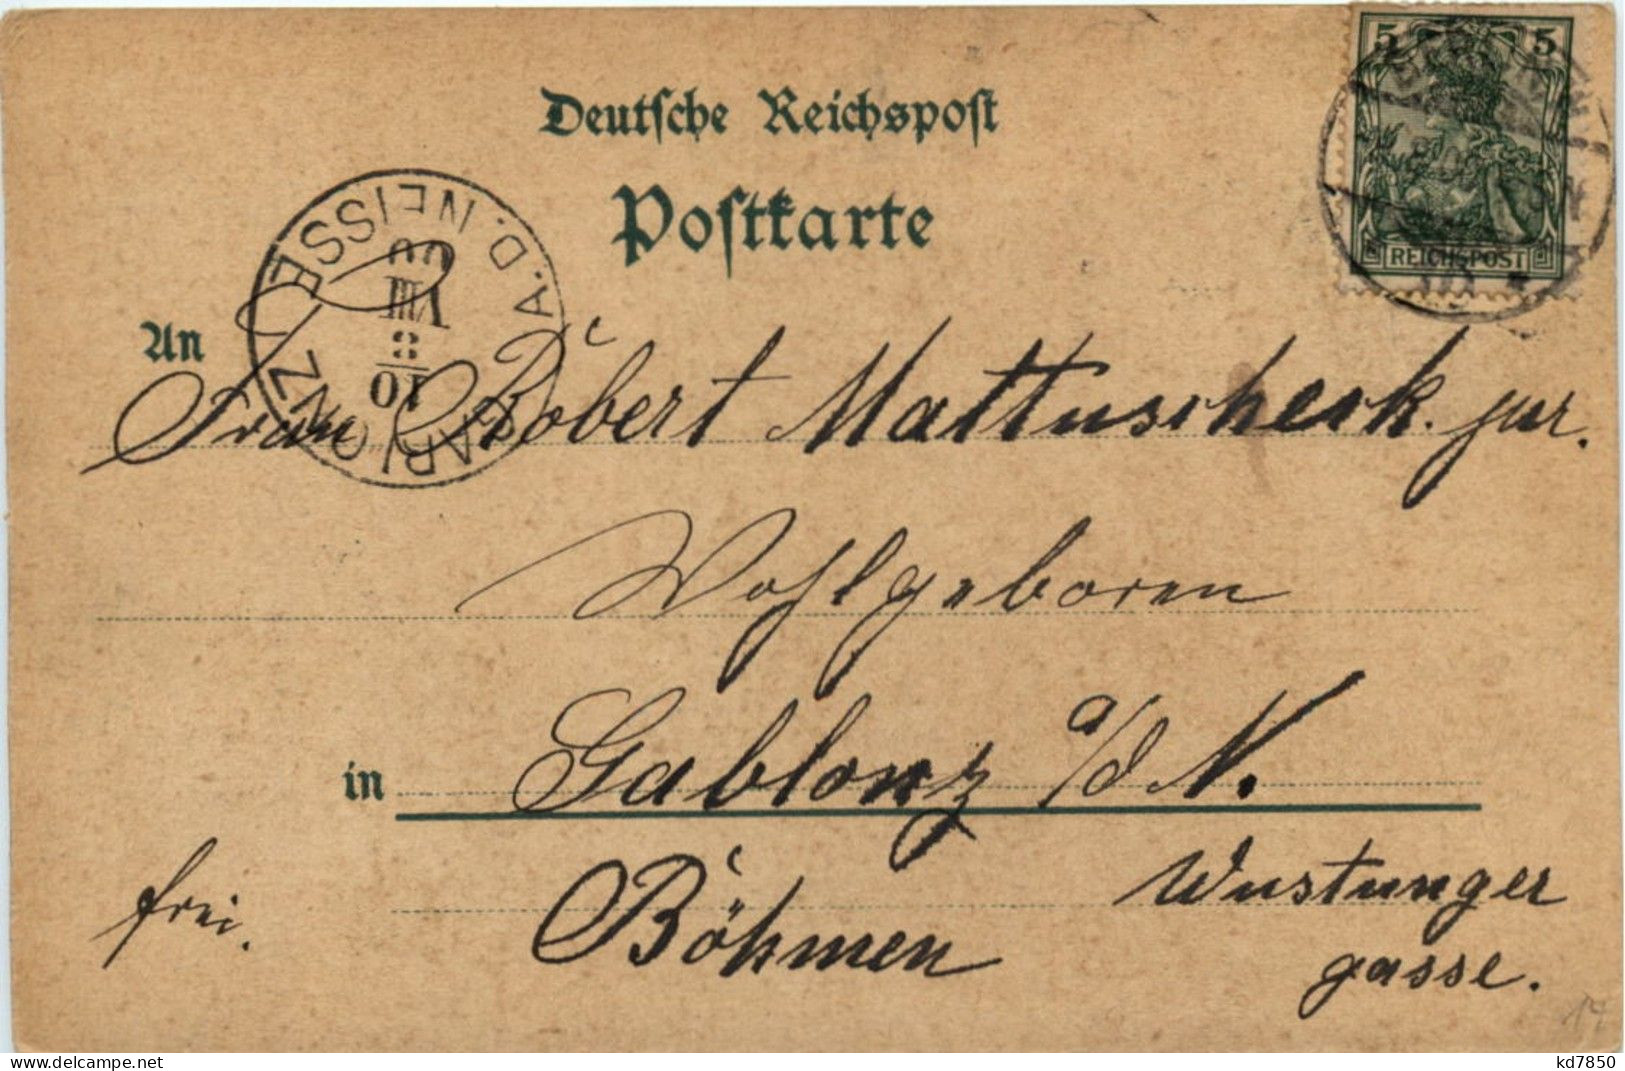 Deutsche Reichspost
Postkarte
5 5
REICHSPOST
GABLONZ A.D. NEISSE
10
3
VIII
00
An
Frau Robert Mattuscheck jur.
Wohlgeboren
in Gablonz a/d N.
frei. Böhmen Wustunger
gasse.
17
kd7850